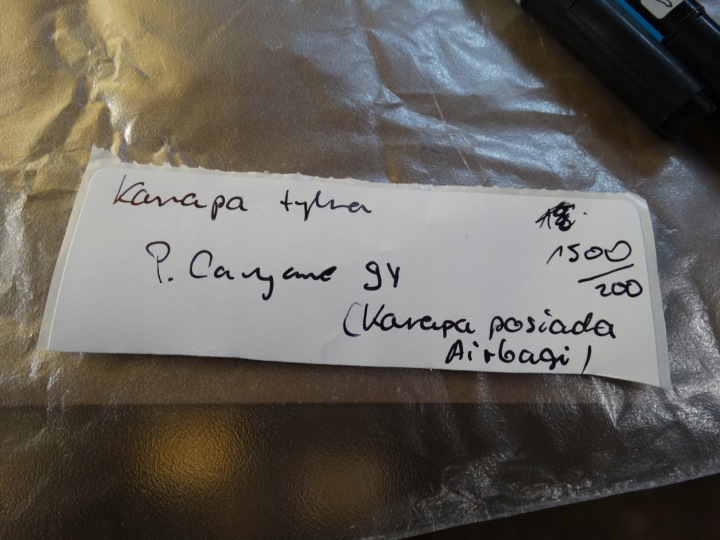 Kanapa tylna
P. Cayenne 9Y
1500
200
(Kanapa posiada
Airbagi)